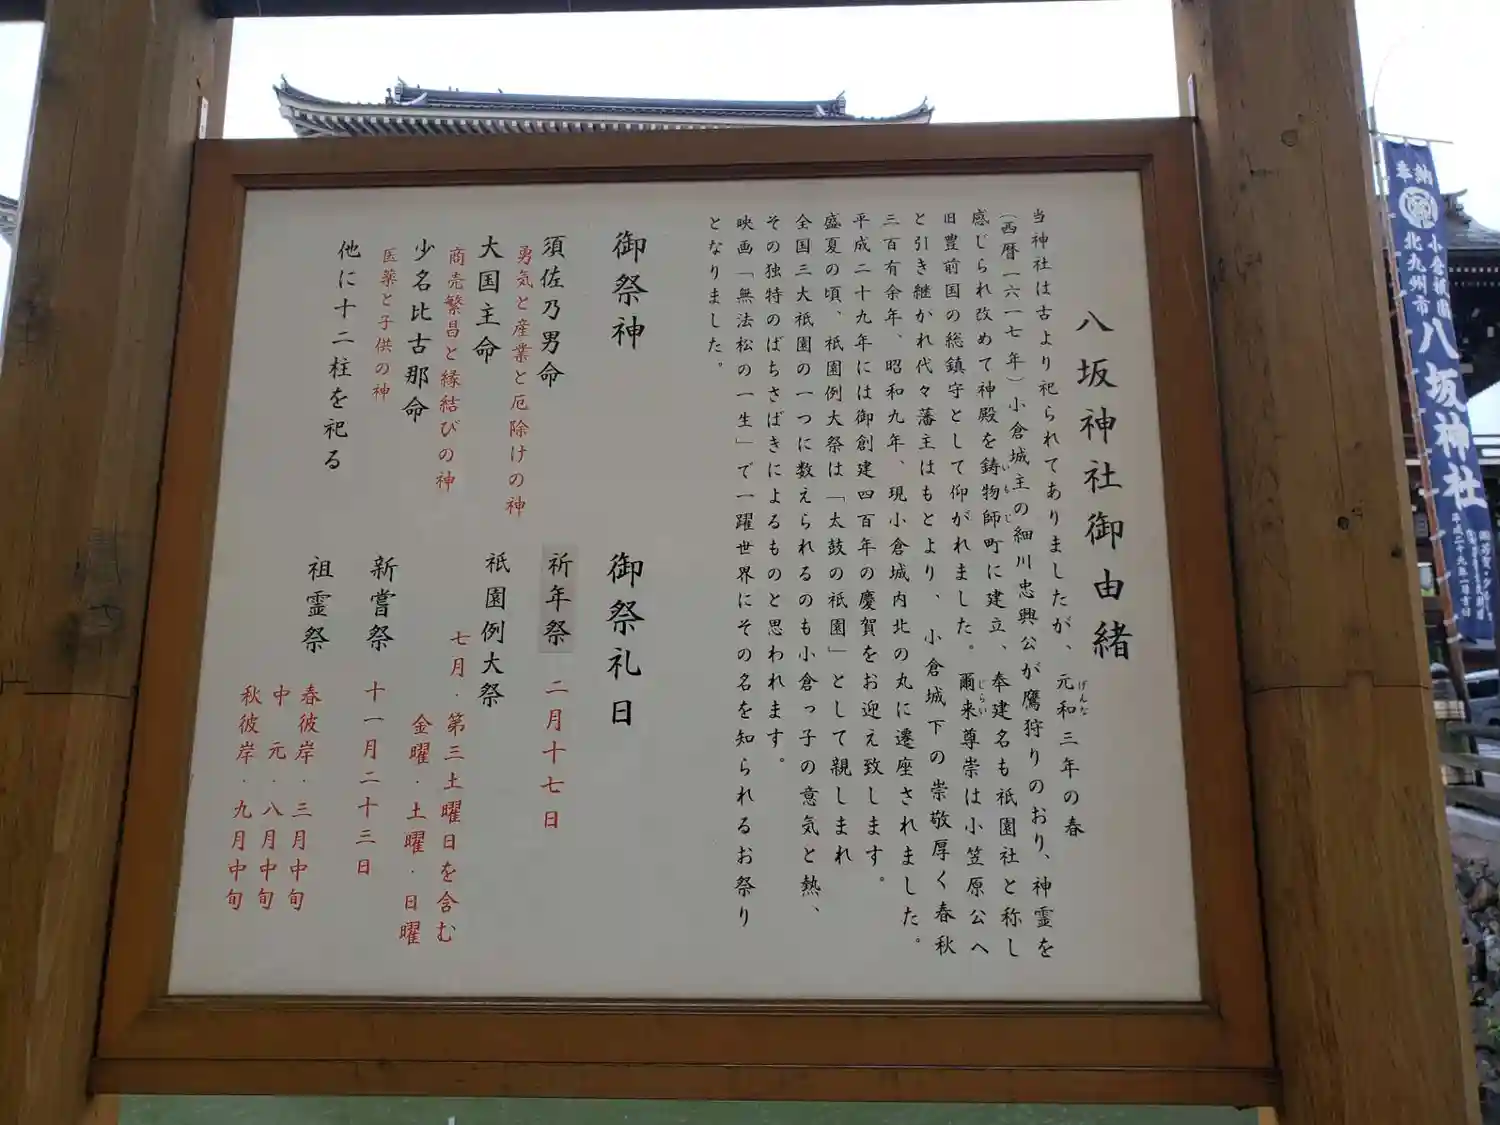 八坂神社御由緒
当神社は古より祀られてありましたが、元和三年の春
げんな
(西暦一六一七年)小倉城主の細川忠興公が鷹狩りのおり、神霊を
感じられ改めて神殿を鋳物師町に建立、奉建名も祇園社と称し
いもじ
旧豊前国の総鎮守として仰がれました。爾来尊崇は小笠原公へ
じらい
と引き継がれ代々藩主はもとより、小倉城下の崇敬厚く春秋
三百有余年、昭和九年、現小倉城内北の丸に遷座されました。
平成二十九年には御創建四百年の慶賀をお迎え致します。
盛夏の頃、祇園例大祭は「太鼓の祇園」として親しまれ
全国三大祇園の一つに数えられるのも小倉っ子の意気と熱、
その独特のばちさばきによるものと思われます。
映画「無法松の一生」で一躍世界にその名を知られるお祭り
となりました。
御祭神
須佐乃男命
勇気と産業と厄除けの神
大国主命
商売繁昌と縁結びの神
少名比古那命
医薬と子供の神
他に十二柱を祀る
御祭礼日
祈年祭 二月十七日
祇園例大祭
七月・第三土曜日を含む
金曜・土曜・日曜
新嘗祭 十一月二十三日
祖霊祭
春彼岸・三月中旬
中元・八月中旬
秋彼岸・九月中旬
奉納
小倉祇園
北九州市
八坂神社
平成二十九年一月吉日